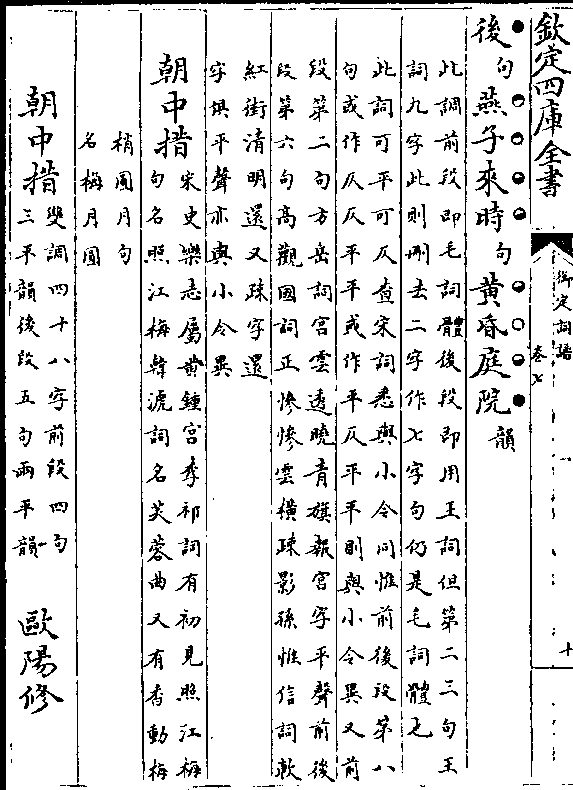 欽定四庫全書
御定詞譜
卷七
十
後句燕子來時句黃昏庭院韻
此調前段即毛詞體後段即用王詞但第二三句王
詞九字此則刪去二字作七字句仍是毛詞體也
此詞可平可仄查宋詞悉與小令同惟前後段第八
句或作仄仄平平或作平仄平平則與小令異又前
段第二句方岳詞宮雲透曉青旗報宮字平聲前後
段第六句高觀國詞正慘慘雲橫疎影孫惟信詞軟
紅街清明還又疎字還
字俱平聲亦與小令異
朝中措宋史樂志屬黃鍾宮李祁詞有初見照江梅
句名照江梅韓淲詞名芙蓉曲又有香動梅
梢圓月句
名梅月圓
朝中措雙調四十八字前段四句
三平韻後段五句兩平韻
歐陽修